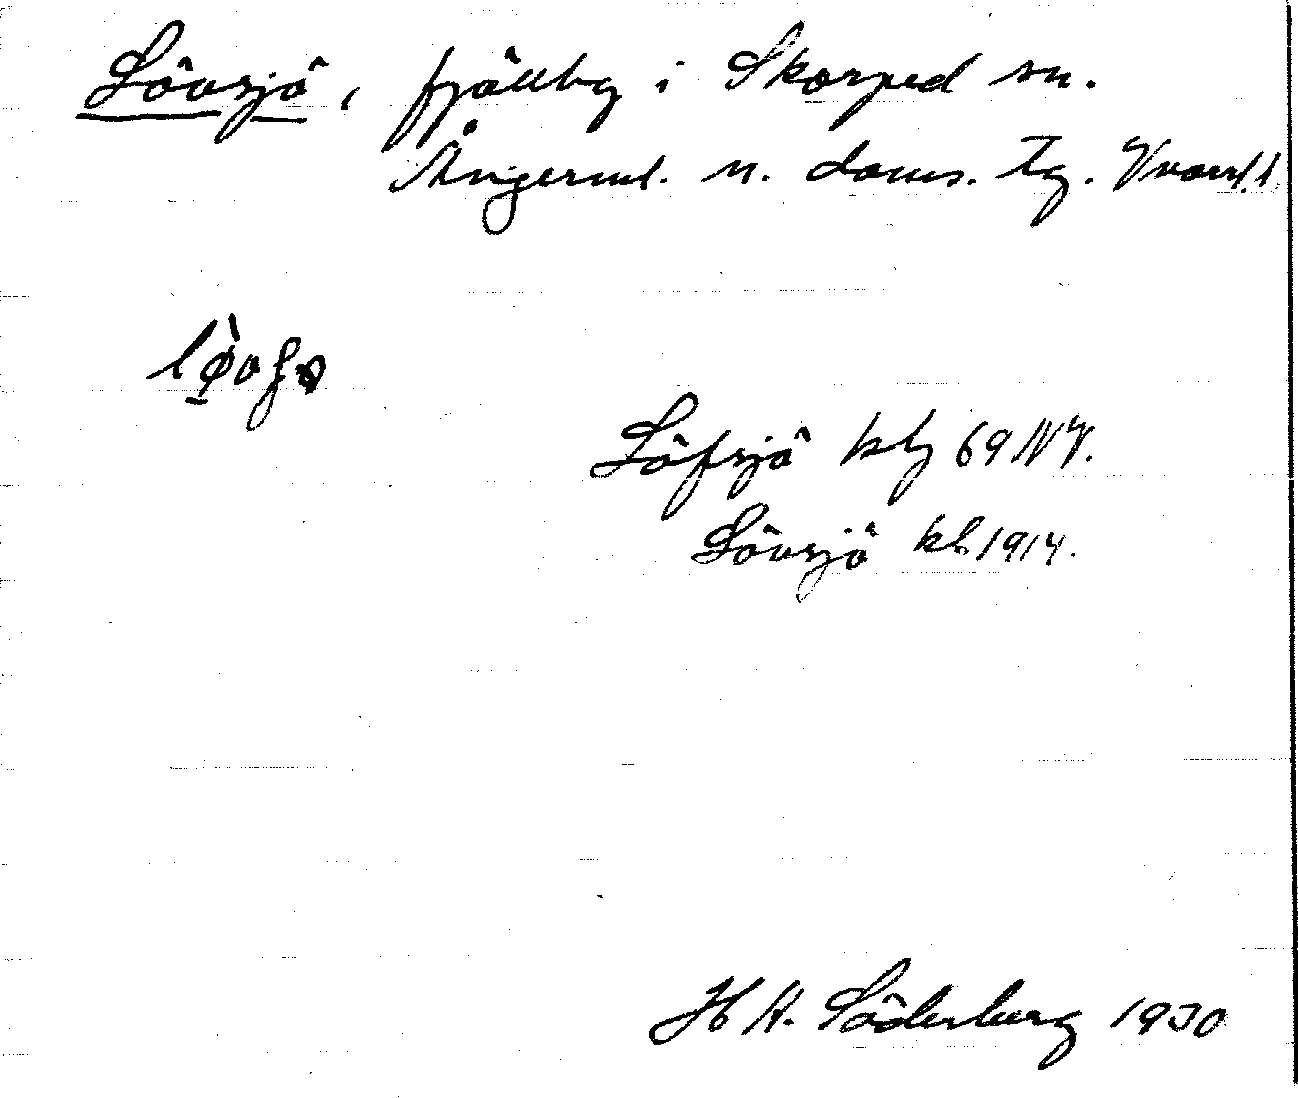 Lövsjö, fjällbg i Skorped sn.
Ångerml. n. doms. Tg. Vvnorrl. l
Löfsjö kbg 69 NV.
Lövsjö kbl. 1914.
H A. Söderberg 1930